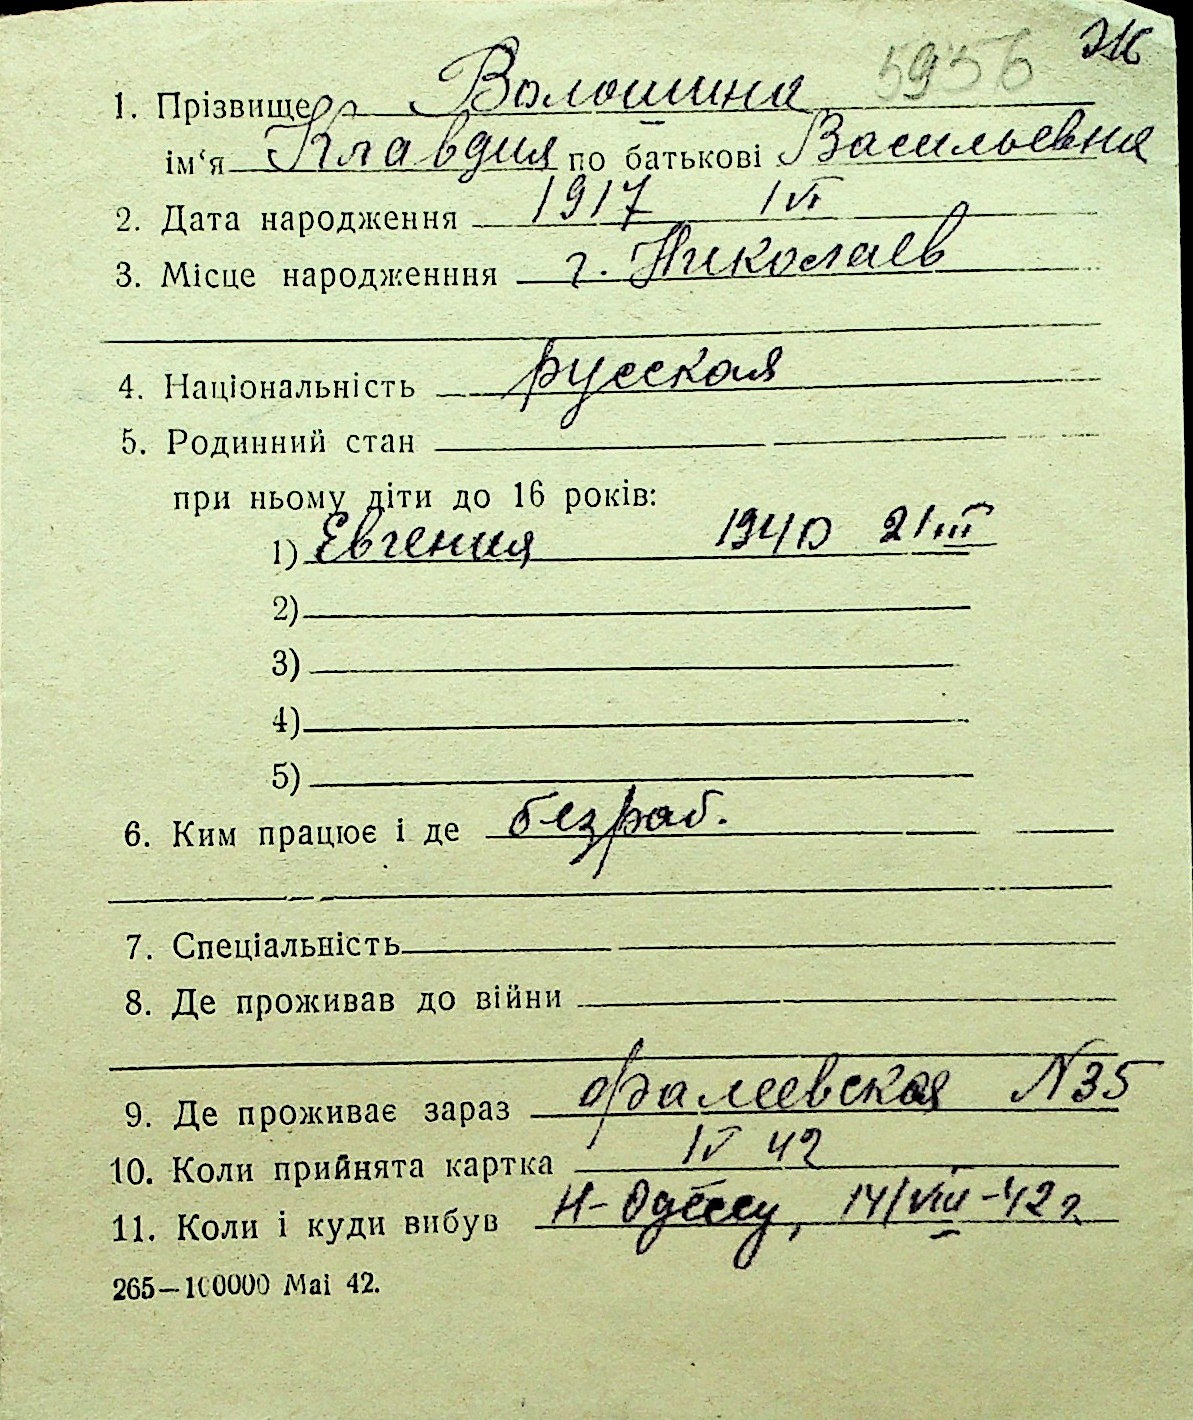 5956 Ж
1. Прізвище Волошина
ім‘я Клавдия по батькові Васильевна
2. Дата народження 1917 1 VI
3. Місце народженння г. Николаев
4. Національність русская
5. Родинний стан
при ньому діти до 16 років:
1) Евгения 1940 21 III
2)
3)
4)
5)
6. Ким працює і де безраб.
7. Спеціальність
8. Де проживав до війни
9. Де проживає зараз Фалеевская N 35
10. Коли прийнята картка 42
11. Коли і куди вибув Н-Одессу, 14/VIII-42 г
265—100000 Mai 42.